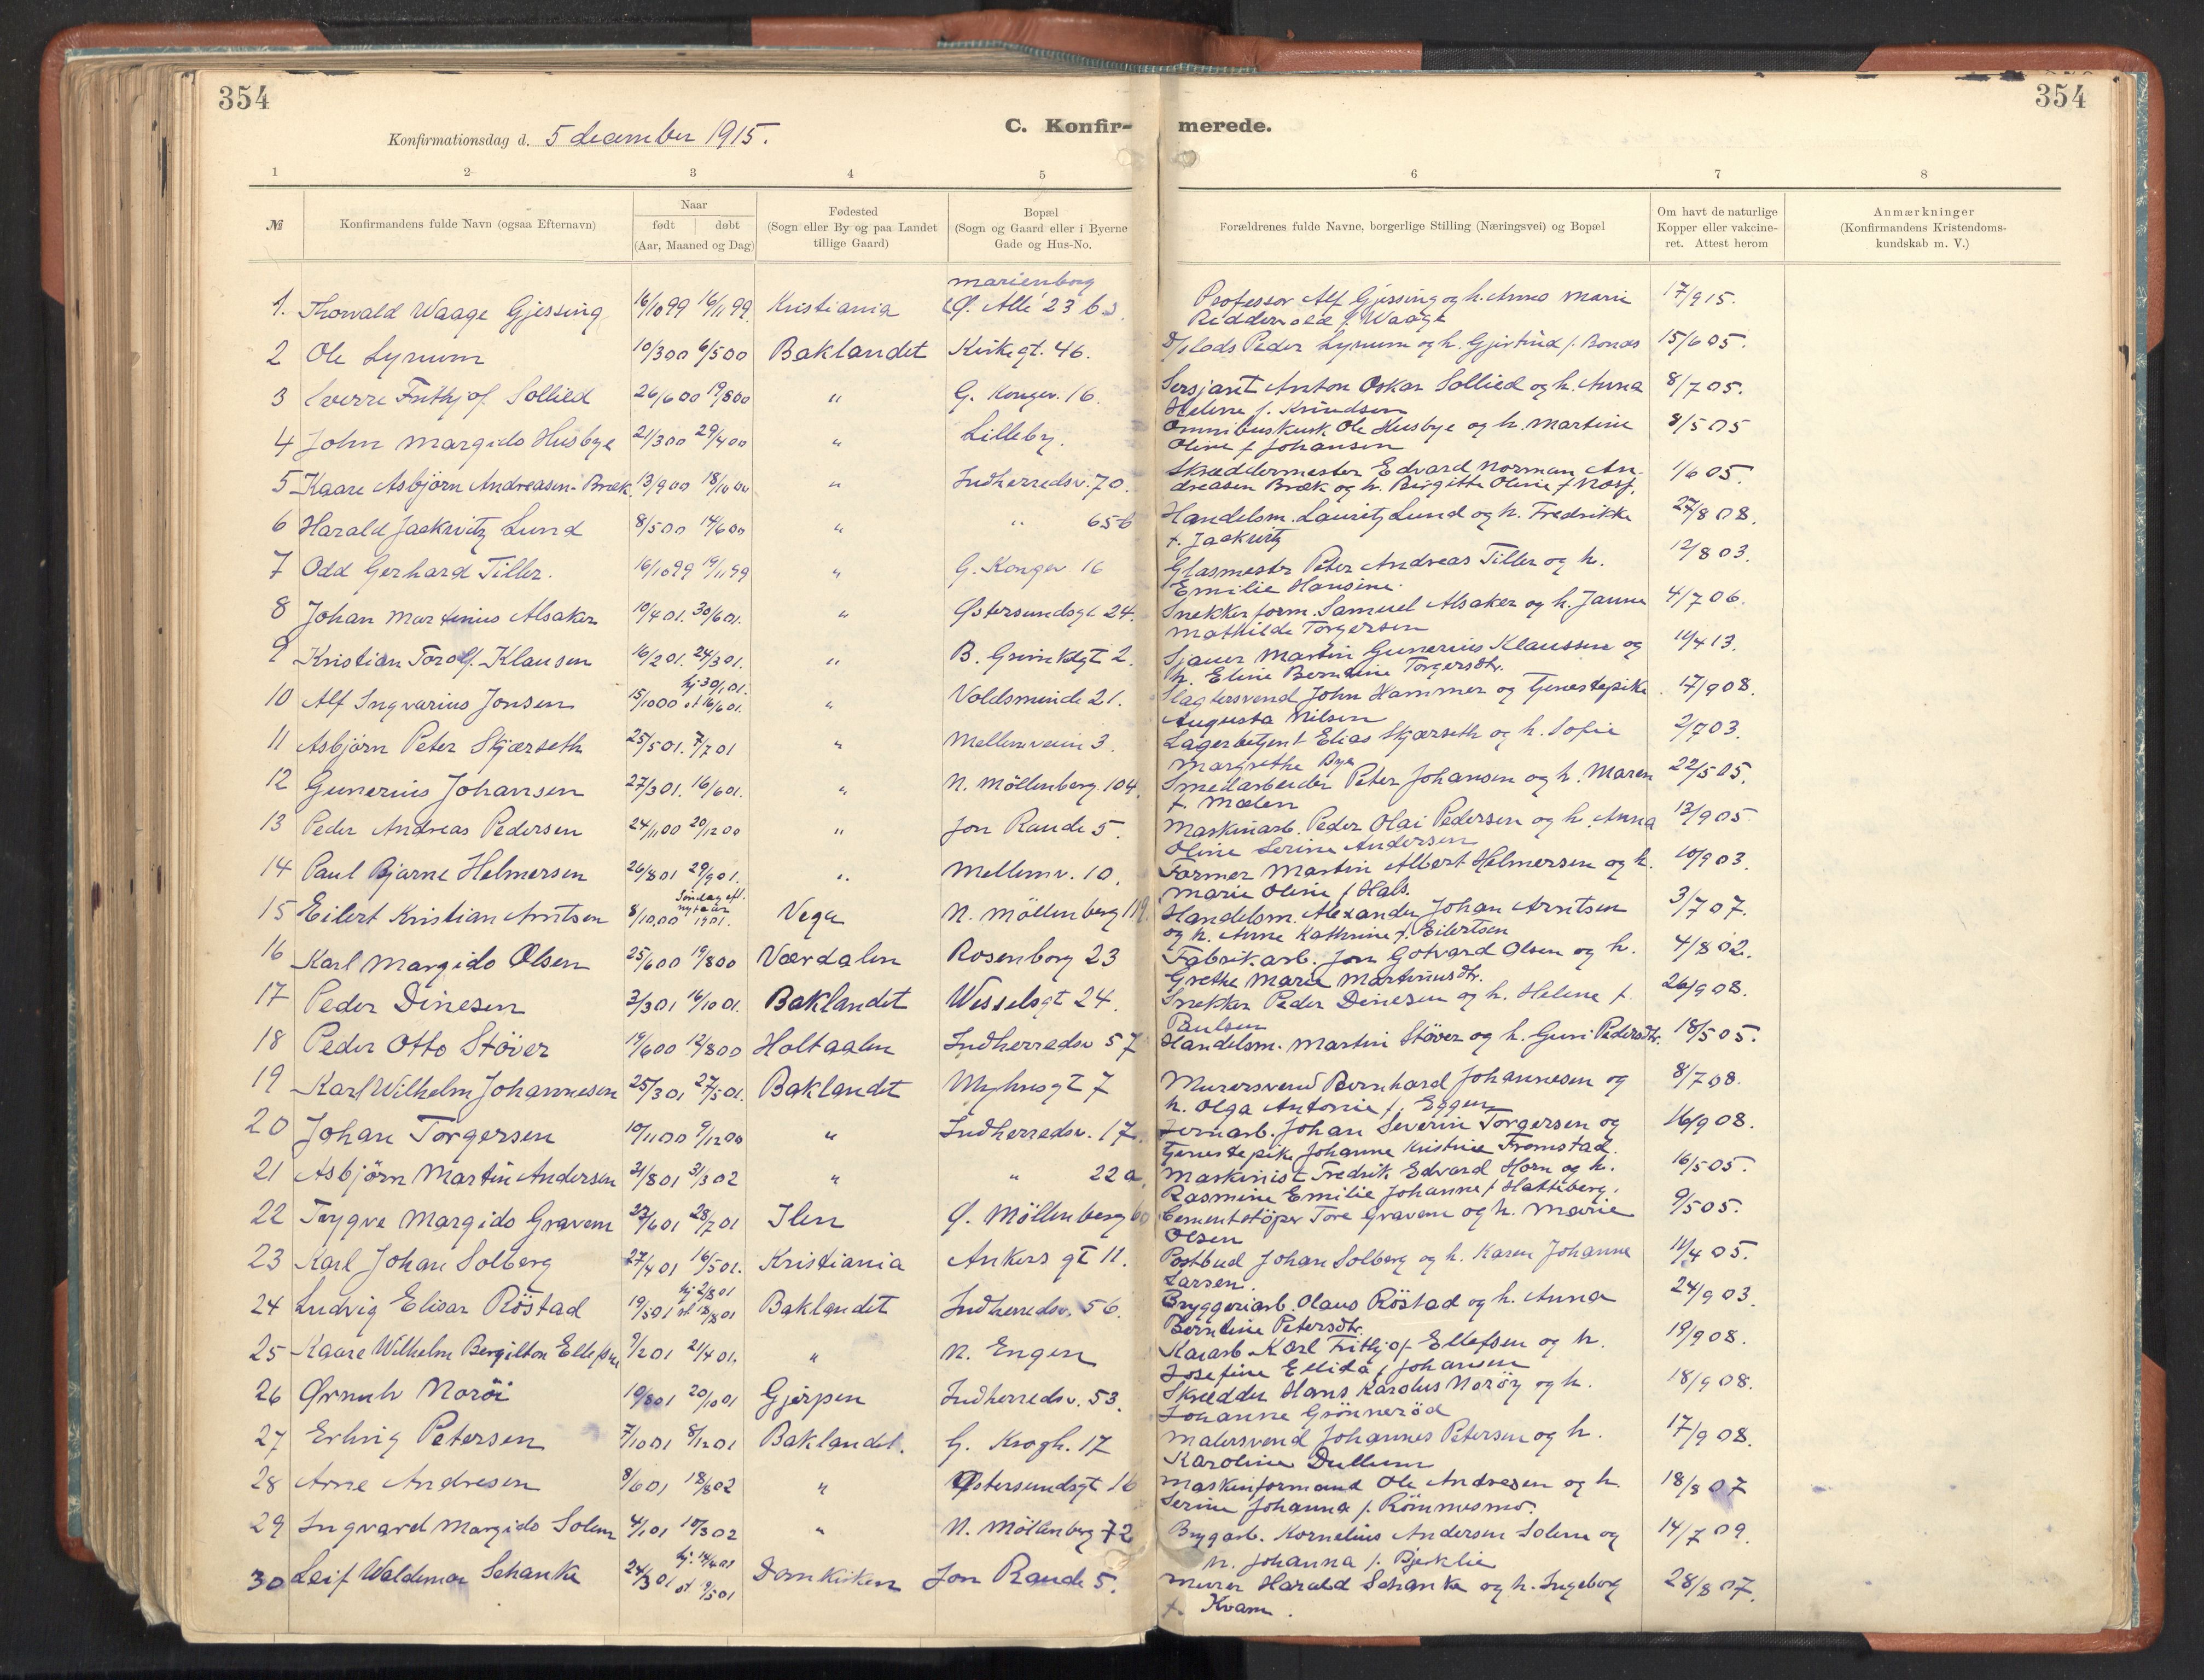 354
354
C. Konfir-
merede.
Konfirmationsdag d. 5 december 1915.
1 2 3 4 5 6 7 8
№ Konfirmandens fulde Navn (ogsaa Efternavn) Naar født døbt (Aar, Maaned og Dag) Fødested (Sogn eller By og paa Landet tillige Gaard) Bopæl (Sogn og Gaard eller i Byerne Gade og Hus-No. Forældrenes fulde Navne, borgerlige Stilling (Næringsvei) og Bopæl Om havt de naturlige Kopper eller vakcineret. Attest herom Anmærkninger (Konfirmandens Kristendomskundskab m. V.)
marienborg
1. Thorvald Waage Gjessing 16/10 99 16/11 99 Kristiania Ø. Allé 23 b. Professor Alf Gjessing og h. Anna Marie 17/9 15.
Reddervold f. Waage
2 Ole Lynum 10/3 00 6/5 00 Baklandet Kirkegt. 46. Peder Lynum og h. Gjertrud f. Bonaas 15/6 05.
3 Sverre Frithjof Sollied 26/6 00 19/8 00 " G. Kongev. 16. Sersjant Anton Oskar Sollied og h. Anna 8/7 05.
Helene f. Knudsen
4 John Margido Husbye 21/3 00 29/4 00 " Lilleby. Omnibuskusk Ole Husbye og h. Martine 8/5 05
Oline f Johansen
5 Kaare Asbjørn Andreasen-Bræk 13/9 00 18/10 00 " Indherredsv. 70. Skræddermester Edvard Norman An- 1/6 05.
dreasen Bræk og h. Birgitte Oline f Nosf.
6 Harald Jackwitz Lund 8/5 00 14/6 00 " " 65 b Handelsm. Lauritz Lund og h. Fredrikke 27/8 08.
f. Jackwitz
7 Odd Gerhard Tiller. 16/10 99 19/11 99 " G. Kongev 16 Glasmester Peter Andreas Tiller og h. 12/8 03.
Emilie Hansine.
8 Johan Martinius Alsaker 10/4 01. 30/6 01. " Østersundsgt 24. Snekkerform. Samuel Alsaker og h. Janna 4/7 06.
Mathilde Torgersen
9 Kristian Torolf Klausen 16/2 01. 24/3 01. " B. Grimkelgt 2. Sjauer Martin Gunerius Klaussen og 11/4 13.
h. Eline Berntine Torgersdtr.
hj 30/1 01.
10 Alf Ingvarius Jonsen 15/10 00 st 16/6 01. " Voldsminde 21. Slagtersvend John Hammer og tjenestepike 17/9 08.
Augusta Nilsen
11 Asbjørn Peter Skjærseth 25/5 01. 7/7 01 " Mellemveien 3. Lagerbetjent Elias Skjærseth og h. Sofie 2/7 03.
Margrethe Bye
12 Gunerius Johansen 27/3 01. 16/6 01. " N. Möllenberg 104. Smedarbeider Peter Johansen og h. Maren 22/5 05.
f. Mælen
13 Peder Andreas Pedersen 24/11 00 20/12 00 " Jon Raude 5. Maskinarb. Peder Olai Pedersen og h. Anna 13/9 05
Oline Serine Andersen
14 Paul Bjarne Helmersen 26/8 01 29/9 01. " Mellemv. 10. Former Martin Albert Helmersen og h. 10/9 03.
Marie Oline f Hals.
Søndag eft. nytaar
15 Eilert Kristian Arntsen 8/10 00 1901. Vega N. Möllenberg 119. Handelsm. Alexander Johan Arntsen 3/7 07.
og h. Anne Kathrine f. Eilertsen
16 Karl Margido Olsen 25/6 00 19/8 00 Værdalen Rosenborg 23 Fabrikarb. Jon Gotvard Olsen og h. 4/8 02.
Grethe Marie Martinusdtr.
17 Peder Dinesen 3/3 01 16/10 01. Baklandet Wesselsgt 24. Snekker Peder Dinesen og h. Helene f. 26/9 08.
Paulsen
18 Peder Otto Stöver 19/6 00 12/8 00 Holtaalen Indherredsv 57 Handelsm. Martin Stöver og h. Guri Pedersdtr. 18/5 05.
19 Karl Wilhelm Johannesen 25/3 01 27/5 01. Baklandet Uhyhusgt 7 Murersvend Bernhard Johannesen og 8/7 08.
h. Olga Antonie f. Eggen
20 Johan Torgersen 10/11 00 9/12 00 " Indherredsv. 17. Jernarb. Johan Severin Torgersen og 16/9 08.
tjenestepike Johanne Kristine Fromstad.
21 Asbjörn Martin Andersen 21/8 01 31/3 02 " " 22 a. Maskinist Fredrik Edvard Horn og h. 16/5 05.
Rasmine Emilie Johanne f Hatteberg.
22 Trygve Margido Gravem 23/6 01 28/7 01 Ilen Ø. Möllenberg 60 Cementstöper Tore Gravem og h. Marie 9/5 05.
Olsen
23 Karl Johan Solberg 27/4 01 16/5 01. Kristiania Ankers gt 11. Postbud Johan Solberg og h. Karen Johanne 11/4 05.
Larsen.
hj 2/8 01
24 Ludvig Elisar Röstad 19/5 01 st 18/8 01 Baklandet Indherredsv. 56. Bryggeriarb. Olaus Röstad og h. Anna 24/9 03.
Berntine Petersdtr.
25 Kaare Wilhelm Bergilton Ellefsen 9/2 01 21/4 01. " N. Engen Kaiarb Karl Frithjof Ellefsen og h. 19/9 08.
Josefine Ellida f Johansen
26 Ørnulv Noröi 10/8 01 20/10 01 Gjerpen Indherredsv. 53. Skrædder Hans Karolus Noröy og h. 18/9 08.
Johanne Grönneröd
27 Erling Petersen 7/10 01 8/12 01 Baklandet. G. Krogh. 17 Malersvend Johannes Petersen og h. 17/9 08.
Karoline Dullum
28 Arne Andresen 8/6 01 18/8 02 " Østersundsgt 16 Maskinformand Ole Andresen og h. 18/8 07
Serine Johanna f. Römmesmo.
29 Ingvard Margido Solem 4/1 01 10/3 02 " N. Möllenberg 72 Brygarb. Kornelius Andersen Solem og 14/7 09.
h. Johanna f. Bjerklie
hj. 14/4 01
30 Leif Waldemar Schanke 24/3 01 st 9/5 01 Domkirken Jon Raude 5. Murer Harald Schanke og h. Ingeborg 28/8 07.
f. Kvam.